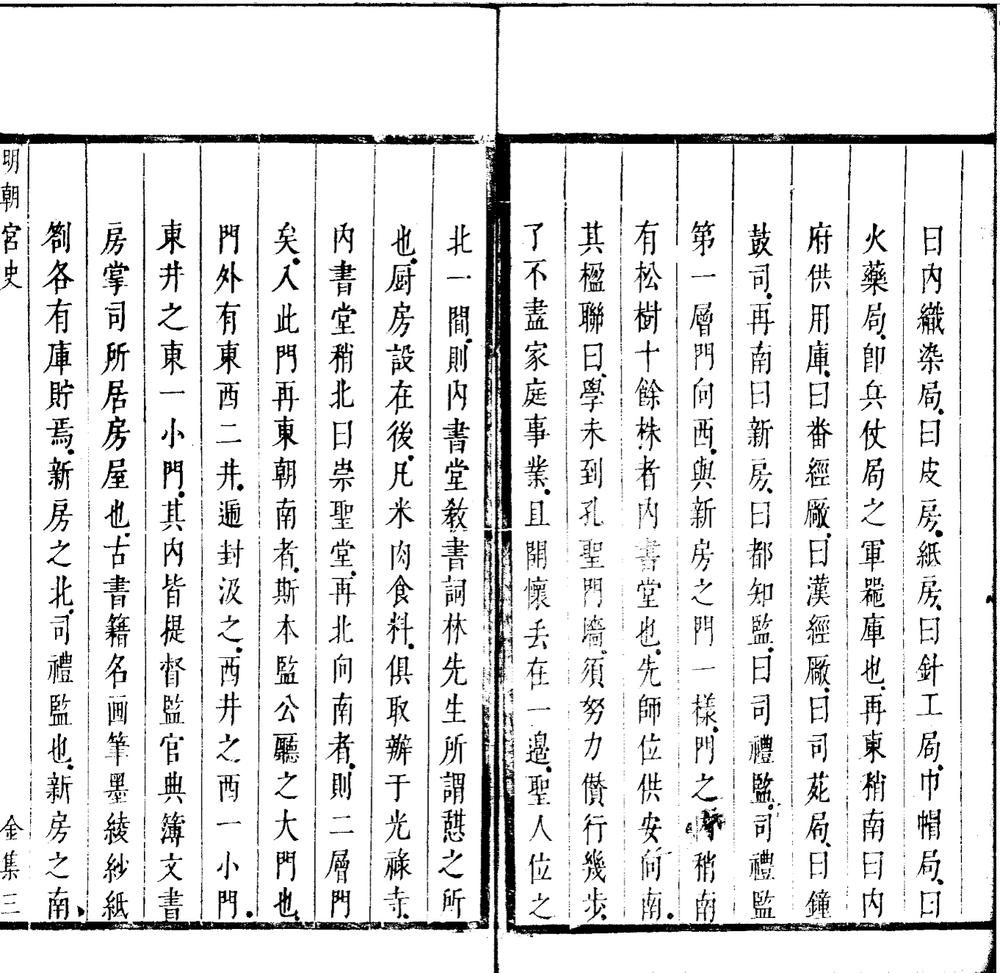 曰内織染局曰皮房紙房曰針工局巾帽局曰
火藥局卽兵仗局之軍器庫也再東稍南曰内
府供用庫曰畨經廠曰漢經廠曰司苑局曰鐘
鼓司再南曰新房曰都知監曰司禮監司禮監
第一層門向西與新房之門一樣門之稍南
有松樹十餘株者内書堂也先師位供安向南
其楹聯曰學未到孔聖門墻須努力儹行幾步
了不盡家庭事業且開懷丢在一邉聖人位之
北一間則内書堂敎書詞林先生所謂憇之所
也厨房設在後凡米肉食料俱取辦于光祿寺
内書堂稍北曰崇聖堂再北向南者則二層門
矣入此門再東朝南者斯本監公廳之大門也
門外有東西二井遞封汲之西井之西一小門
東井之東一小門其内皆提督監官典簿文書
房掌司所居房屋也古書籍名画筆墨綾紗紙
劄各有庫貯焉新房之北司禮監也新房之南
明朝宮史 金集三